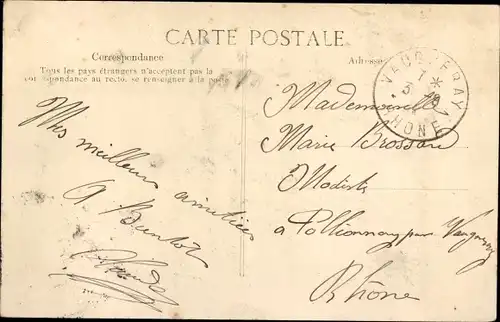 CARTE POSTALE
Correspondance
Tous les pays étrangers n'acceptent pas la
correspondance au recto, se renseigner à la poste
Mes meilleurs amitiés
A Bientôt
Adresse
VAUGNERAY
RHONE
Mademoiselle
Marie Brossard
Modiste
a Pollionnay par Vaugneray
Rhône